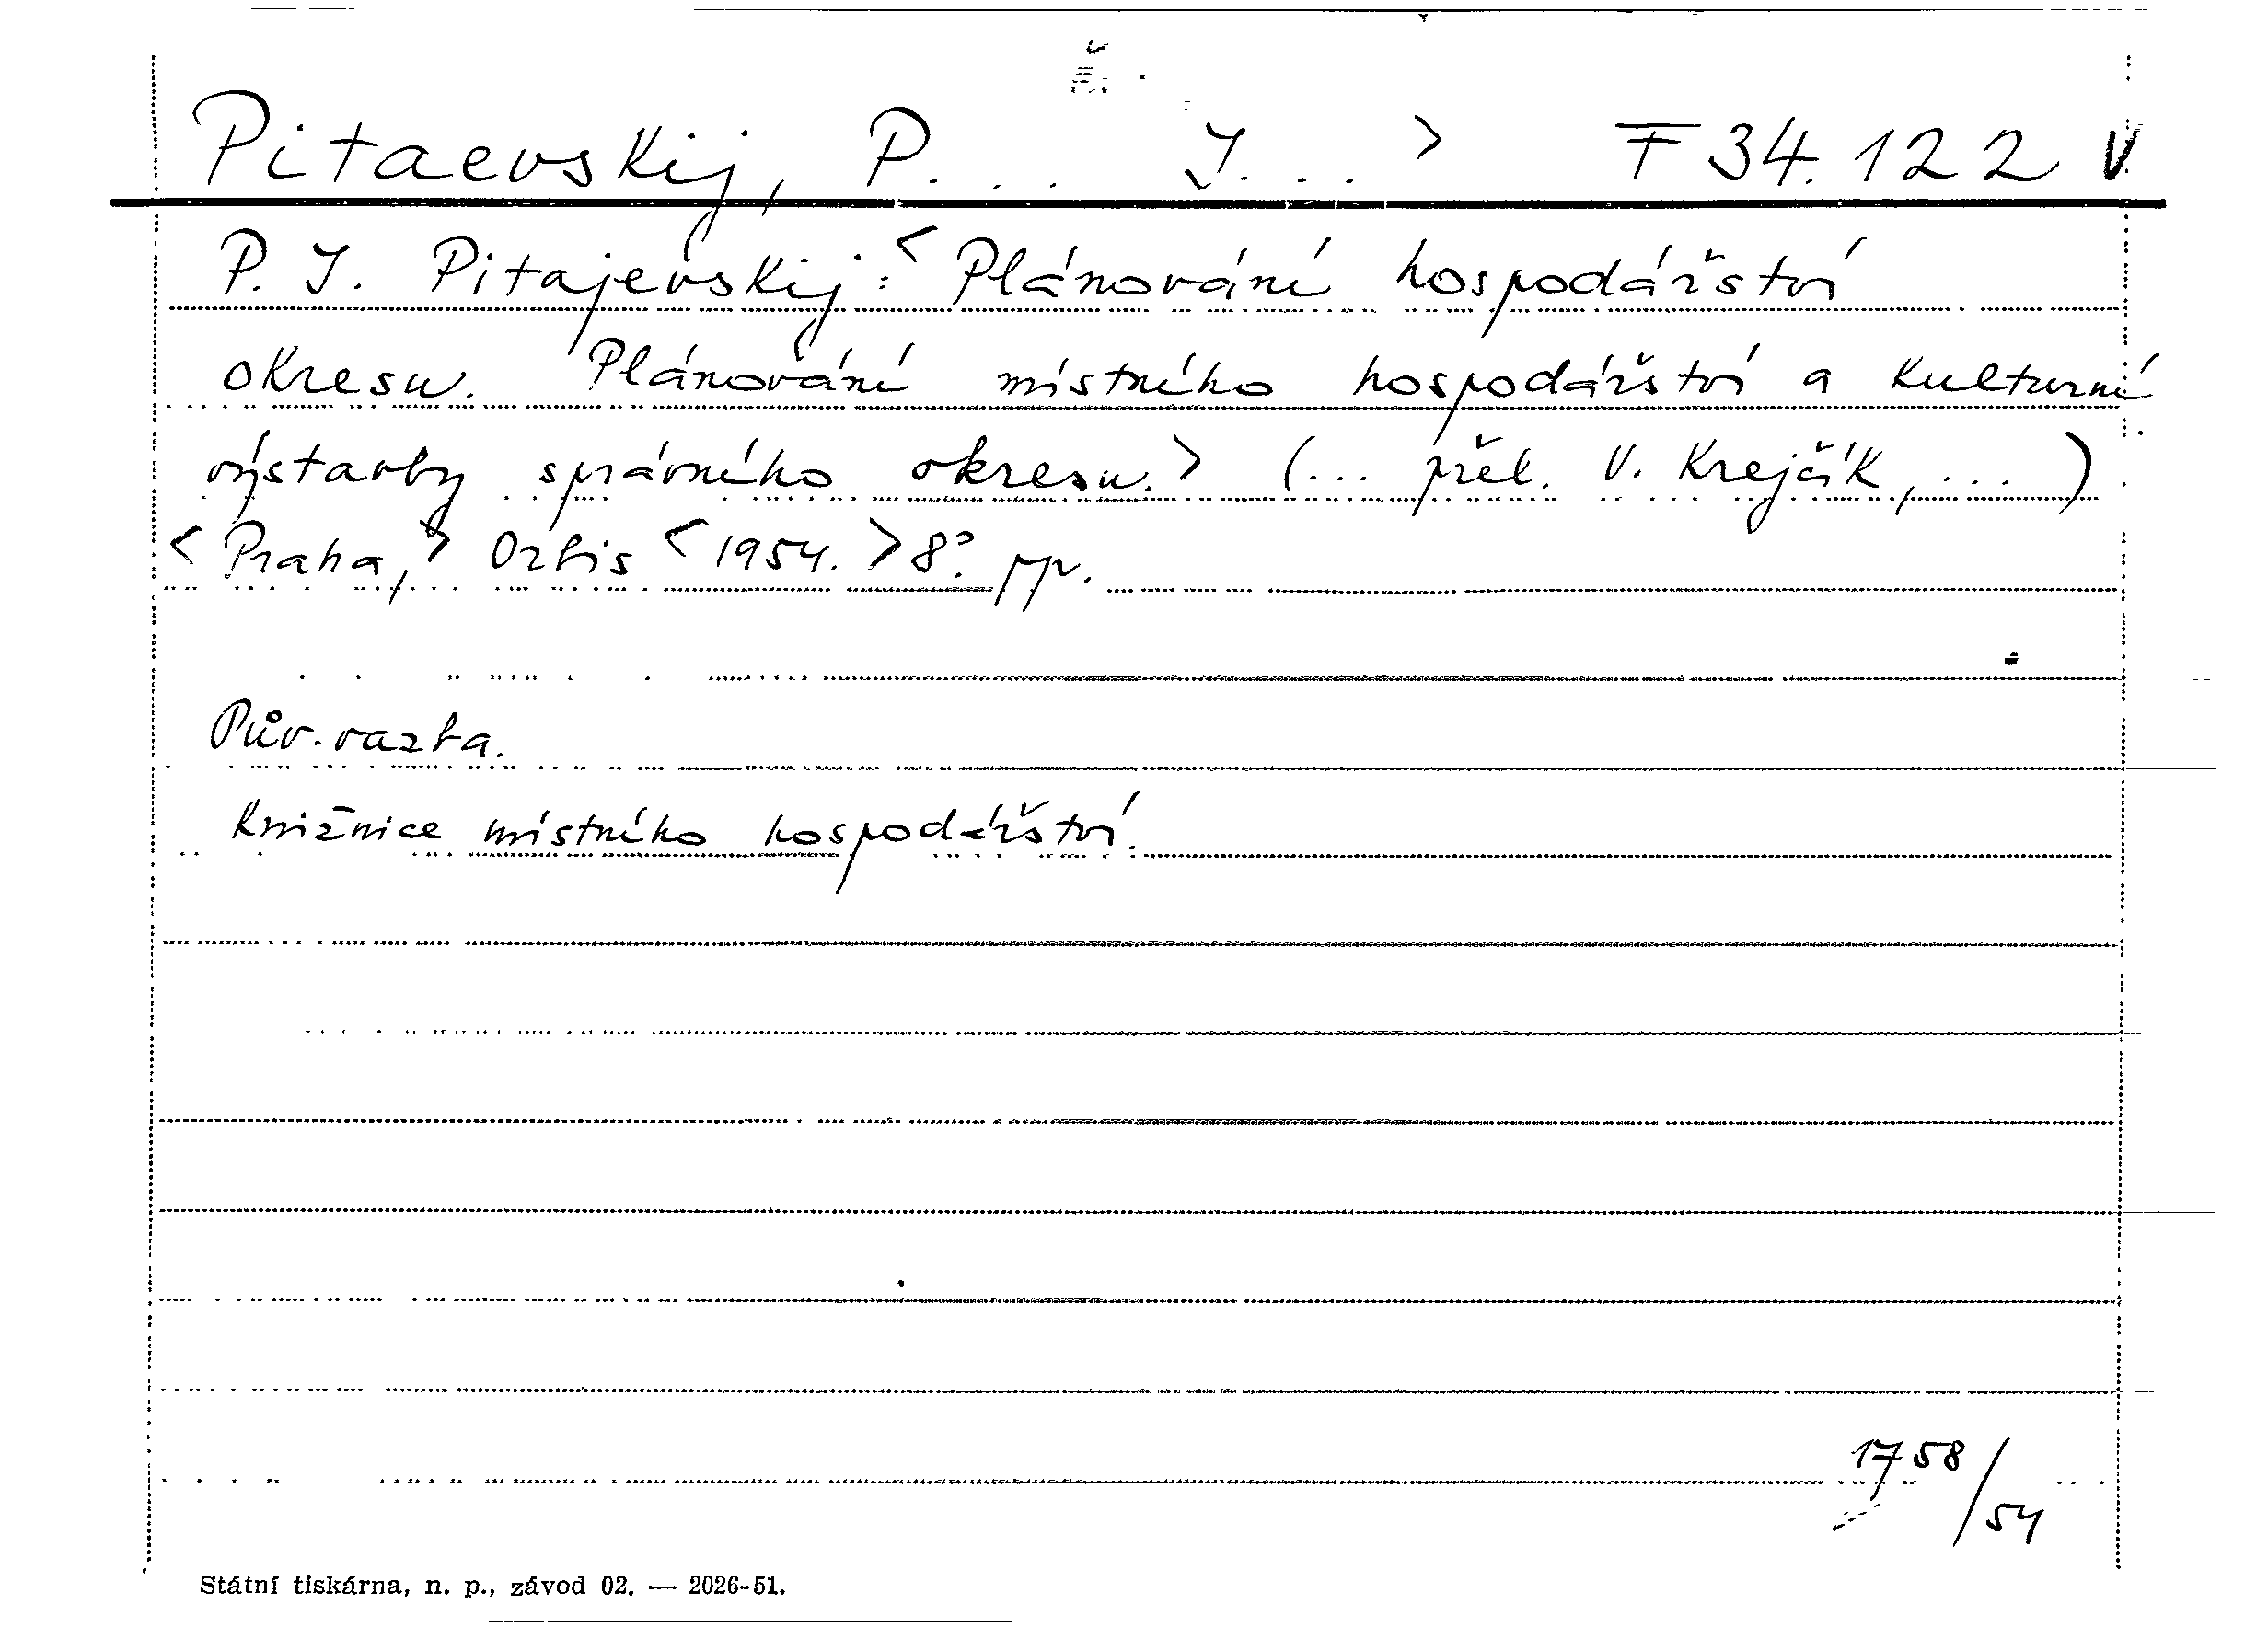 Pitaevskij, P... J... > F 34.122 V.
P. J. Pitajevskij: < Plánování hospodářství
okresu. Plánování místního hospodářství a kulturní
výstavby správního okresu. > (... přel. V. Krejčík, ...)
< Praha, > Orbis < 1954. > 8°. pp.
Pův. vazba.
Knižnice místního hospodářství.
1758/54
Státní tiskárna, n. p., závod 02. — 2026-51.